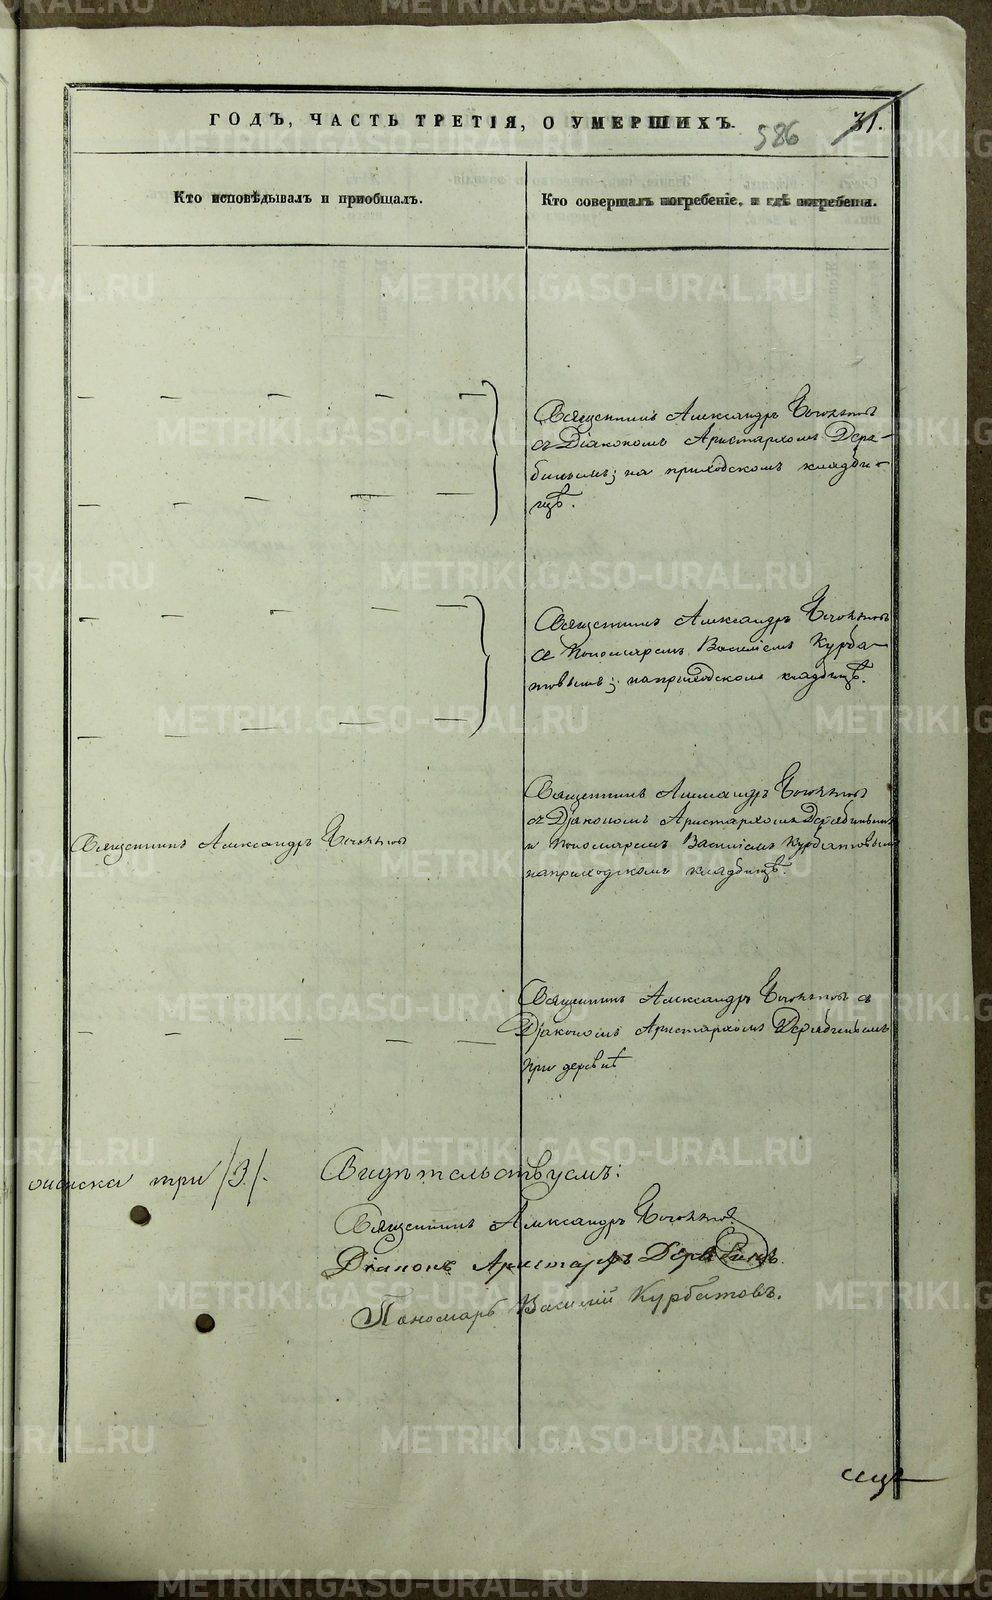 ГОДЪ, ЧАСТЬ ТРЕТІЯ, О УМЕРШИХЪ.
586
31.
Кто исповѣдывалъ и пріобщалъ.
Кто совершалъ погребеніе, и гдѣ погребены.
Священникъ Александръ
съ Діакономъ Аристархомъ Деря-
бинымъ; на приходскомъ кладби-
щѣ.
Священникъ Александръ
съ Пономаремъ Василіемъ Курба-
товымъ; на приходскомъ кладбищѣ.
Священникъ Александръ
Священникъ Александръ
съ Діакономъ Аристархомъ Дерябинымъ
и Пономаремъ Василіемъ Курбатовымъ
на приходскомъ кладбищѣ.
Священникъ Александръ съ
Діакономъ Аристархомъ Дерябинымъ
при деревнѣ
три /3/.
Свидѣтельствуемъ:
Священникъ Александръ
Діаконъ Аристархъ Дерябинъ.
Пономарь Василій Курбатовъ.
METRIKI.GASO-URAL.RU